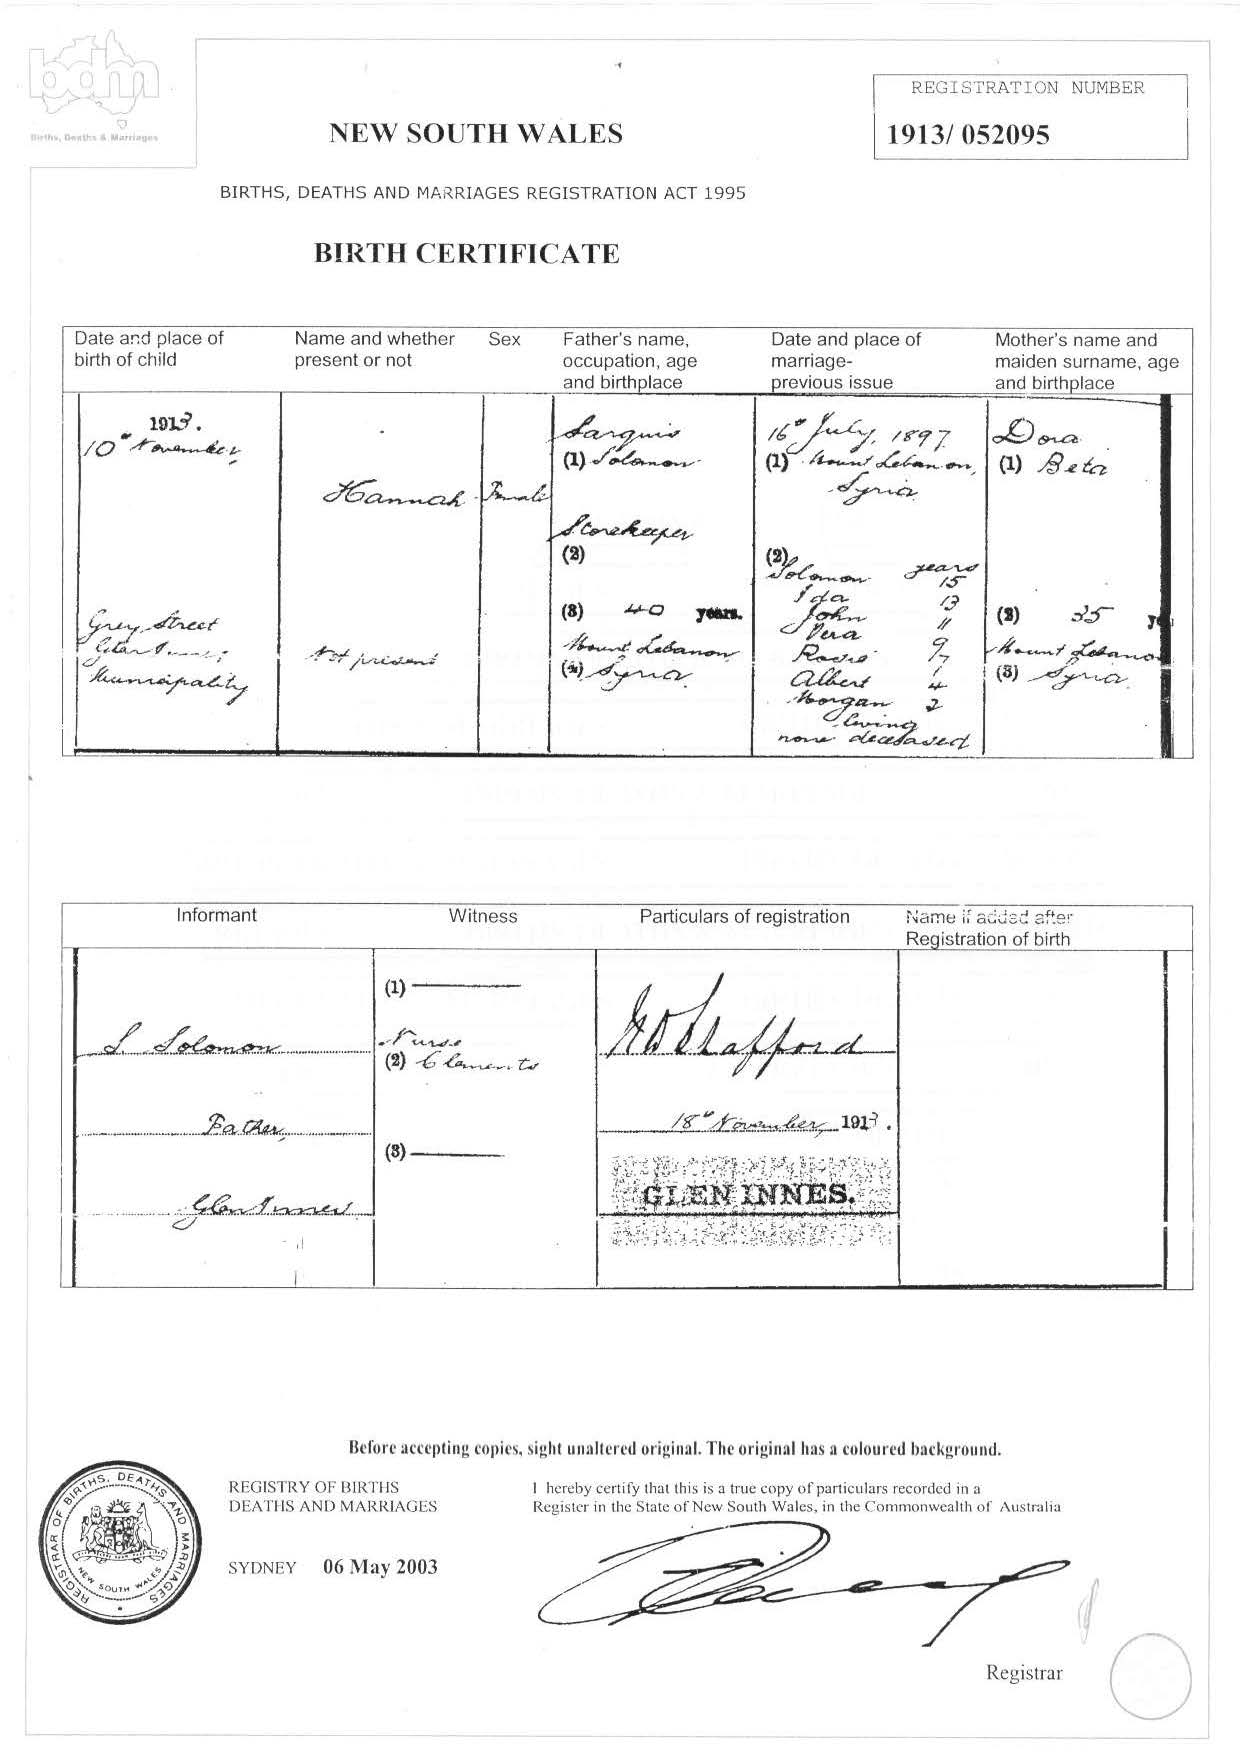 bdm
Births, Deaths & Marriages
REGISTRATION NUMBER
1913/ 052095
NEW SOUTH WALES
BIRTHS, DEATHS AND MARRIAGES REGISTRATION ACT 1995
BIRTH CERTIFICATE
Date and place of
birth of child
Name and whether
present or not
Sex
Father's name,
occupation, age
and birthplace
Date and place of
marriage-
previous issue
Mother's name and
maiden surname, age
and birthplace
1913.
10th November,
Grey Street
Glen Innes,
Municipality
Hannah
Not present
Female
Sarquis
(1) Solomon
Storekeeper
(2)
(3) 40 years.
Mount Lebanon
(4) Syria.
16th July, 1897
(1) Mount Lebanon,
Syria
(2)
Solomon years 15
Ida 13
John 11
Vera 9
7
Albert 4
Morgan 2
living
none deceased
Dora
(1) Beta
(2) 35 ye
Mount Lebanon
(3) Syria.
Informant
Witness
Particulars of registration
Name if added after
Registration of birth
S. Solomon
Father,
Glen Innes
(1)
Nurse
(2) Clements
(3)
Shafford
18th November, 1913.
GLEN INNES.
Before accepting copies, sight unaltered original. The original has a coloured background.
REGISTRAR OF BIRTHS, DEATHS AND MARRIAGES
NEW SOUTH WALES
REGISTRY OF BIRTHS
DEATHS AND MARRIAGES
SYDNEY 06 May 2003
I hereby certify that this is a true copy of particulars recorded in a
Register in the State of New South Wales, in the Commonwealth of Australia
Registrar